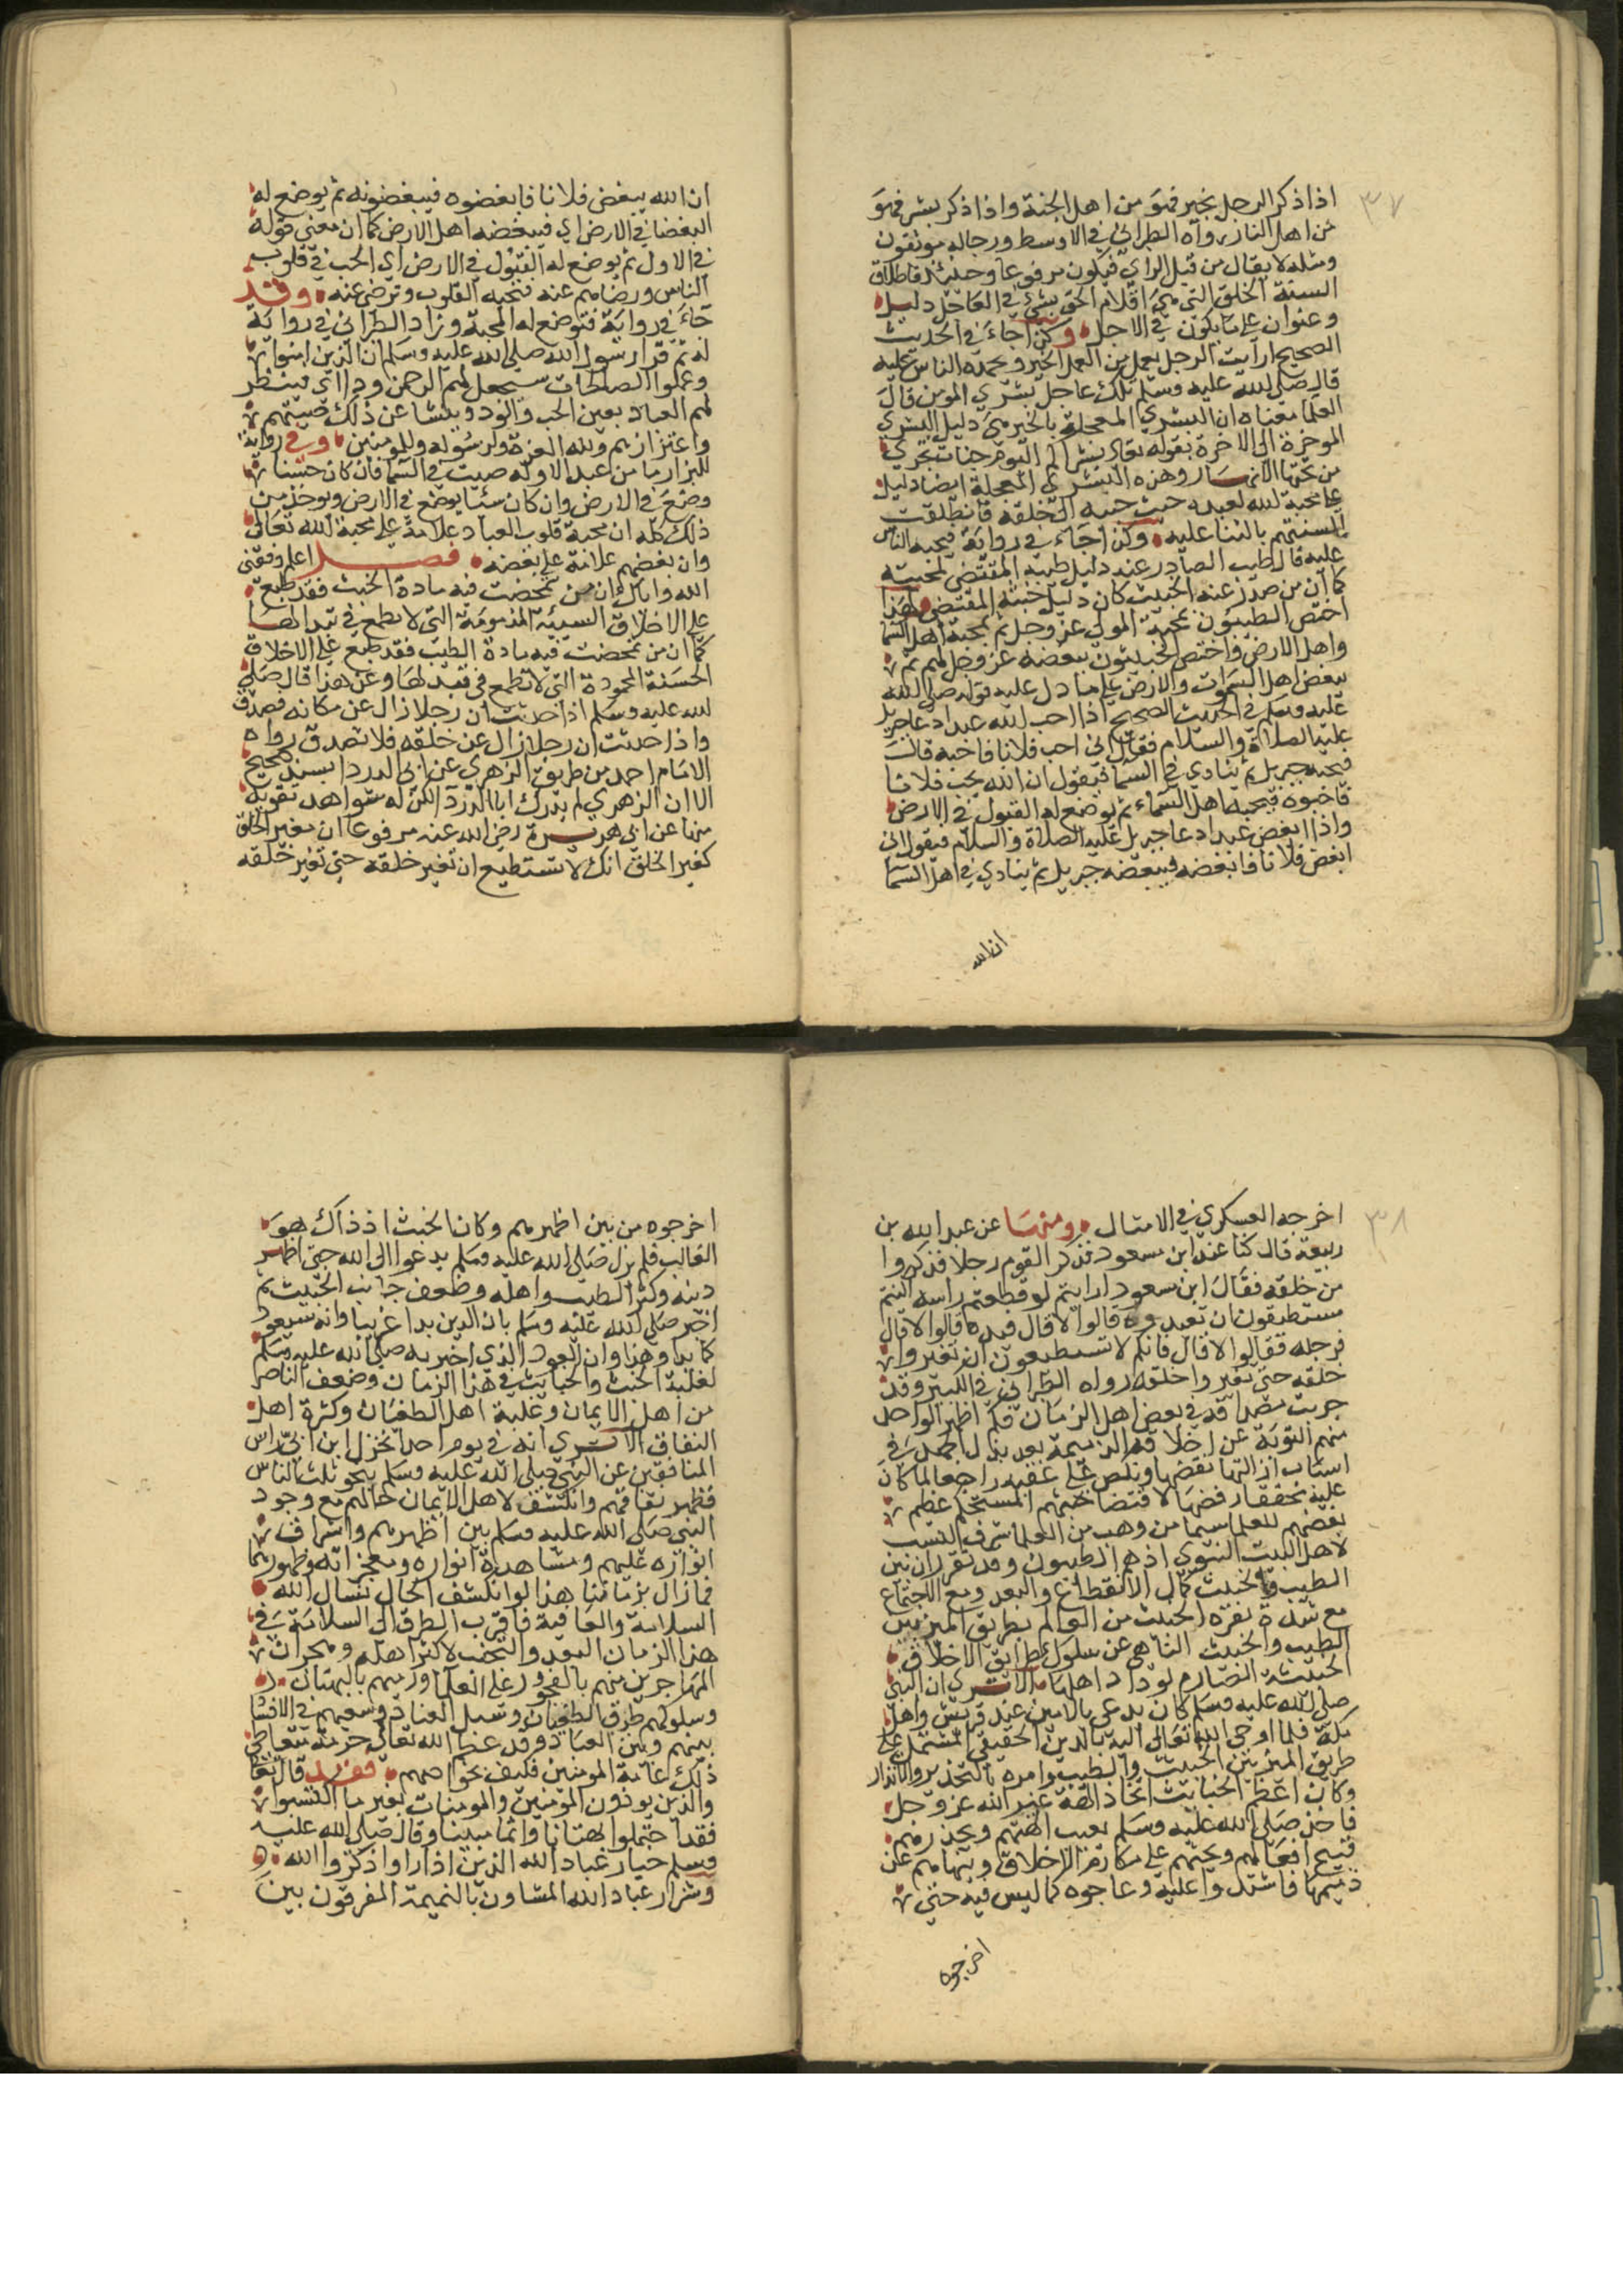 ٣٧
اذا ذكر الرجل بخير فهو من اهل الجنة واذا ذكر بشر فهو
من اهل النار رواه الطبراني في الاوسط ورجاله موثقون
ومثله لا يقال من قبل الراي فيكون مرفوعا وحينئذ فاطلاق
السنة الخلق التي هي اقلام الحق بشئ في العاجل دليل
وعنوان على ما يكون في الاجل وكذا جاء في الحديث
الصحيح ارايت الرجل يعمل من العمل الخير ويحمده الناس عليه
قال صلى الله عليه وسلم تلك عاجل بشرى المؤمن قال
العلما معناه ان البشرى المعجلة بالخير هي دليل البشرى
الموخرة الى الاخرة بقوله تعالى بشراكم اليوم جنات تجري
من تحتها الانهار وهذه البشرى المعجلة ايضا دليل
على محبة الله لعبده حيث حببه الى خلقه فانطلقت
السنتهم بالثنا عليه وكذا جاء في رواية فيحبه الناس
عليه فالطيب الصادر عنه دليل طيبه المقتضي لمحبته
كما ان من صدر عنه الخبيث كان دليل خبثه المقتضي لهذا
اختص الطيبون بمحبة المولى عز وجل ثم بمحبة اهل السما
واهل الارض واختص الخبيثون ببغضه عز وجل لهم ثم
ببغض اهل السموات والارض على ما دل عليه قوله صلى الله
عليه وسلم في الحديث الصحيح اذا احب الله عبدا دعا جبريل
عليه الصلاة والسلام فقال اني احب فلانا فاحبه قال
فيحبه جبريل ثم ينادي في السما فيقول ان الله يحب فلانا
فاحبوه فيحبه اهل السماء ثم يوضع له القبول في الارض
واذا ابغض عبدا دعا جبريل عليه الصلاة والسلام فيقول اني
ابغض فلانا فابغضه فيبغضه جبريل ثم ينادي في اهل السما
ان الله
ان الله يبغض فلانا فابغضوه فيبغضونه ثم يوضع له
البغضا في الارض اي فيبغضه اهل الارض كما ان معنى قوله
في الاول ثم يوضع له القبول في الارض اي الحب في قلوب
الناس ورضاهم عنه فتحبه القلوب وترضى عنه وقد
جاء في رواية فتوضع له المحبة وزاد الطبراني في رواية
له ثم قرا رسول الله صلى الله عليه وسلم ان الذين امنوا
وعملوا الصالحات سيجعل لهم الرحمن ودا اي فينظر
لهم العباد بعين الحب والود وينشا عن ذلك صيتهم
واعتزازهم ولله العزة ولرسوله وللمومنين وفي رواية
للبزار ما من عبد الا وله صيت في السما فان كان حسنا
وضع في الارض وان كان سيئا يوضع في الارض ويوخذ من
ذلك كله ان محبة قلوب العباد علامة على محبة الله تعالى
وان بغضهم علامة على بغضه فصل اعلم وفقني
الله واياك ان من تمحضت فيه مادة الخبث فقد طبع
على الاخلاق السيئة المذمومة التي لا يطمع في تبدالها
كما ان من تمحضت فيه مادة الطيب فقد طبع على الاخلاق
الحسنة المحمودة التي لا تطمع في تبدلها وعن هذا قال صلى
الله عليه وسلم اذا حدثت ان رجلا زال عن مكانه فصدق
واذا حدثت ان رجلا زال عن خلقه فلا تصدق رواه
الامام احمد من طريق الزهري عن ابي الدردا بسند صحيح
الا ان الزهري لم يدرك ابا الدردآ لكن له شواهد تقويه
منها عن ابي هريرة رضي الله عنه مرفوعا ان مغير الخلق
كمغير الخلق انك لا تستطيع ان تغير خلقه حتى تغير خلقه
٣٨
اخرجه العسكري في الامثال ومنها عن عبد الله بن
ربيعة قال كنا عند ابن مسعود فذكر القوم رجلا فذكروا
من خلقه فقال ابن مسعود ارايتم لو قطعتم راسه اكنتم
تستطيعون ان تعيدوه قالوا لا قال فيده قالوا لا قال
فرجله فقالوا لا قال فانكم لا تستطيعون ان تغيروا
خلقه حتى تغيروا خلقه رواه الطبراني في الكبير وقد
جربت مصداقه في بعض اهل الزمان فكم اظهر الواحد
منهم التوبة عن اخلاقه الذميمة بعد بذل الجهد في
اسباب ازالتها نقضها ونكص على عقبيه راجعا لما كان
عليه بحققار فضها لاقتضا خبثهم المستحكم عظم
بغضهم للعلما سيما من وهب من العلما شرف النسب
لاهل البيت النبوي اذ هم الطيبون وقد تقرر ان بين
الطيب والخبيث كمال الانقطاع والبعد ومع الاجتماع
مع شدة نفرة الخبيث من العالم بطريق الميز بين
الطيب والخبيث الناهي عن سلوك طرايق الاخلاق
الخبيثة الصارم لوداد اهلها الا ترى ان النبي
صلى الله عليه وسلم كان يدعى بالامين عند قريش واهل
مكة فلما اوحى الله تعالى اليه بالدين الحقيقي المشتمل على
طريق الميز بين الخبيث والطيب وامره بالتحذير والانذار
وكان اعظم الخبايث اتخاذ الهة غير الله عز وجل
فاخذ صلى الله عليه وسلم يعيب الهتهم ويحذرهم
قبيح افعالهم ويحثهم على مكارم الاخلاق وينهاهم عن
ذميمها فاشتدوا عليه وعاجوه كما ليس فيه حتى
اخرجوه
اخرجوه من بين اظهرهم وكان الخبث اذ ذاك هو
الغالب فلم يزل صلى الله عليه وسلم يدعوا الى الله حتى اظهر
دينه وكثر الطيب واهله وضعف جانب الخبيث ثم
اخبر صلى الله عليه وسلم بان الدين بدا غريبا وانه سيعود
كما بدا وهذا وان العود الذي اخبر به صلى الله عليه وسلم
لغلبة الخبث والخبايث في هذا الزمان وضعف الناصر
من اهل الايمان وغلبة اهل الطغيان وكثرة اهل
النفاق الا ترى انه في يوم احد انخزل ابن ابي راس
المنافقين عن النبي صلى الله عليه وسلم بنحو ثلث الناس
فظهر نفاقهم وانكشف لاهل الايمان حالهم مع وجود
النبي صلى الله عليه وسلم بين اظهرهم واشراف
انواره عليهم ومشاهدة انواره ومعجزاته وظهورها
فما زال بزماننا هذا لو انكشف الحال نسال الله
السلامة والعافية فاقرب الطرق الى السلامة في
هذا الزمان البعد والتجنب لاكثر اهله وهجران
المهاجرين منهم بالفجور على العلما ورميهم بالبهتان
وسلوكهم طرق الطغيان وسبل العناد وسعيهم في الافشا
بينهم وبين العباد وقد عظم الله تعالى حرمة متعاطي
ذلك لعامة المومنين فكيف بخواصهم فقد قال تعالى
والذين يوذون المومنين والمومنات بغير ما اكتسبوا
فقد احتملوا بهتانا واثما مبينا وقال صلى الله عليه
وسلم خيار عباد الله الذين اذا راوا ذكروا الله
وشرار عباد الله المشاون بالنميمة المفرقون بين